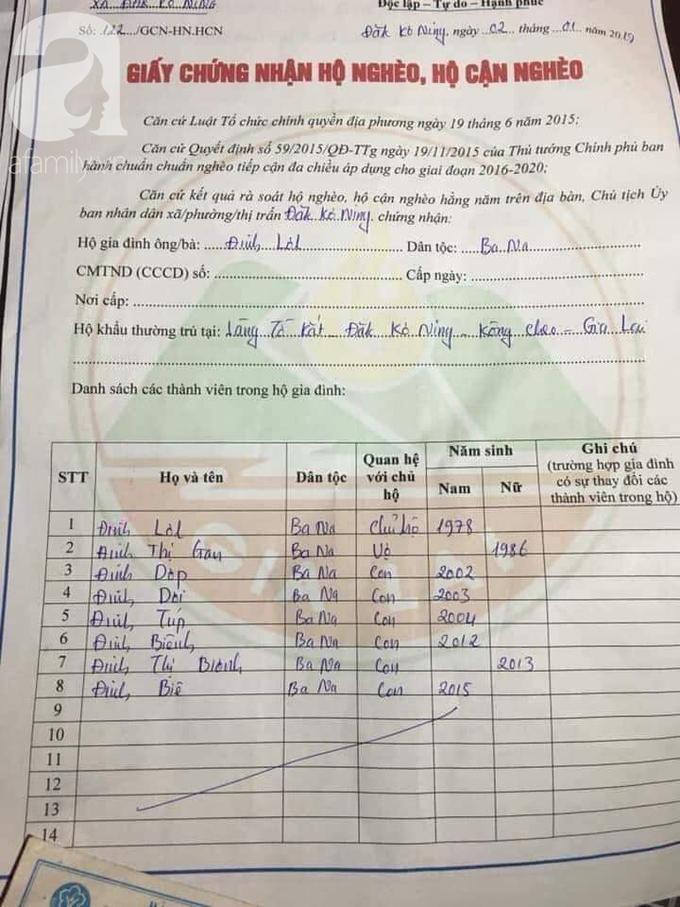 XÃ ĐĂK KƠ NING
Độc lập – Tự do – Hạnh phúc
Số: 122 /GCN-HN.HCN
Đăk Kơ Ning, ngày 02 tháng 01 năm 2019
GIẤY CHỨNG NHẬN HỘ NGHÈO, HỘ CẬN NGHÈO
Căn cứ Luật Tổ chức chính quyền địa phương ngày 19 tháng 6 năm 2015;
Căn cứ Quyết định số 59/2015/QĐ-TTg ngày 19/11/2015 của Thủ tướng Chính phủ ban
hành chuẩn chuẩn nghèo tiếp cận đa chiều áp dụng cho giai đoạn 2016-2020;
Căn cứ kết quả rà soát hộ nghèo, hộ cận nghèo hằng năm trên địa bàn, Chủ tịch Ủy
ban nhân dân xã/phường/thị trấn Đăk Kơ Ning chứng nhận:
Hộ gia đình ông/bà: Đinh Lơl Dân tộc: Ba Na
CMTND (CCCD) số: Cấp ngày:
Nơi cấp:
Hộ khẩu thường trú tại: Làng Tơ Kắt - Đăk Kơ Ning - Kông Chro - Gia Lai
Danh sách các thành viên trong hộ gia đình:
STT Họ và tên Dân tộc Quan hệ với chủ hộ Năm sinh Nam Nữ Ghi chú (trường hợp gia đình có sự thay đổi các thành viên trong hộ)
1 Đinh Lơl Ba Na Chủ hộ 1978
2 Đinh Thị Gan Ba Na Vợ 1986
3 Đinh Dơp Ba Na Con 2002
4 Đinh Ba Na Con 2003
5 Đinh Tup Ba Na Con 2004
6 Đinh Biênh Ba Na Con 2012
7 Đinh Thị Ba Na Con 2013
8 Đinh Biê Ba Na Con 2015
9
10
11
12
13
14
afamily.vn